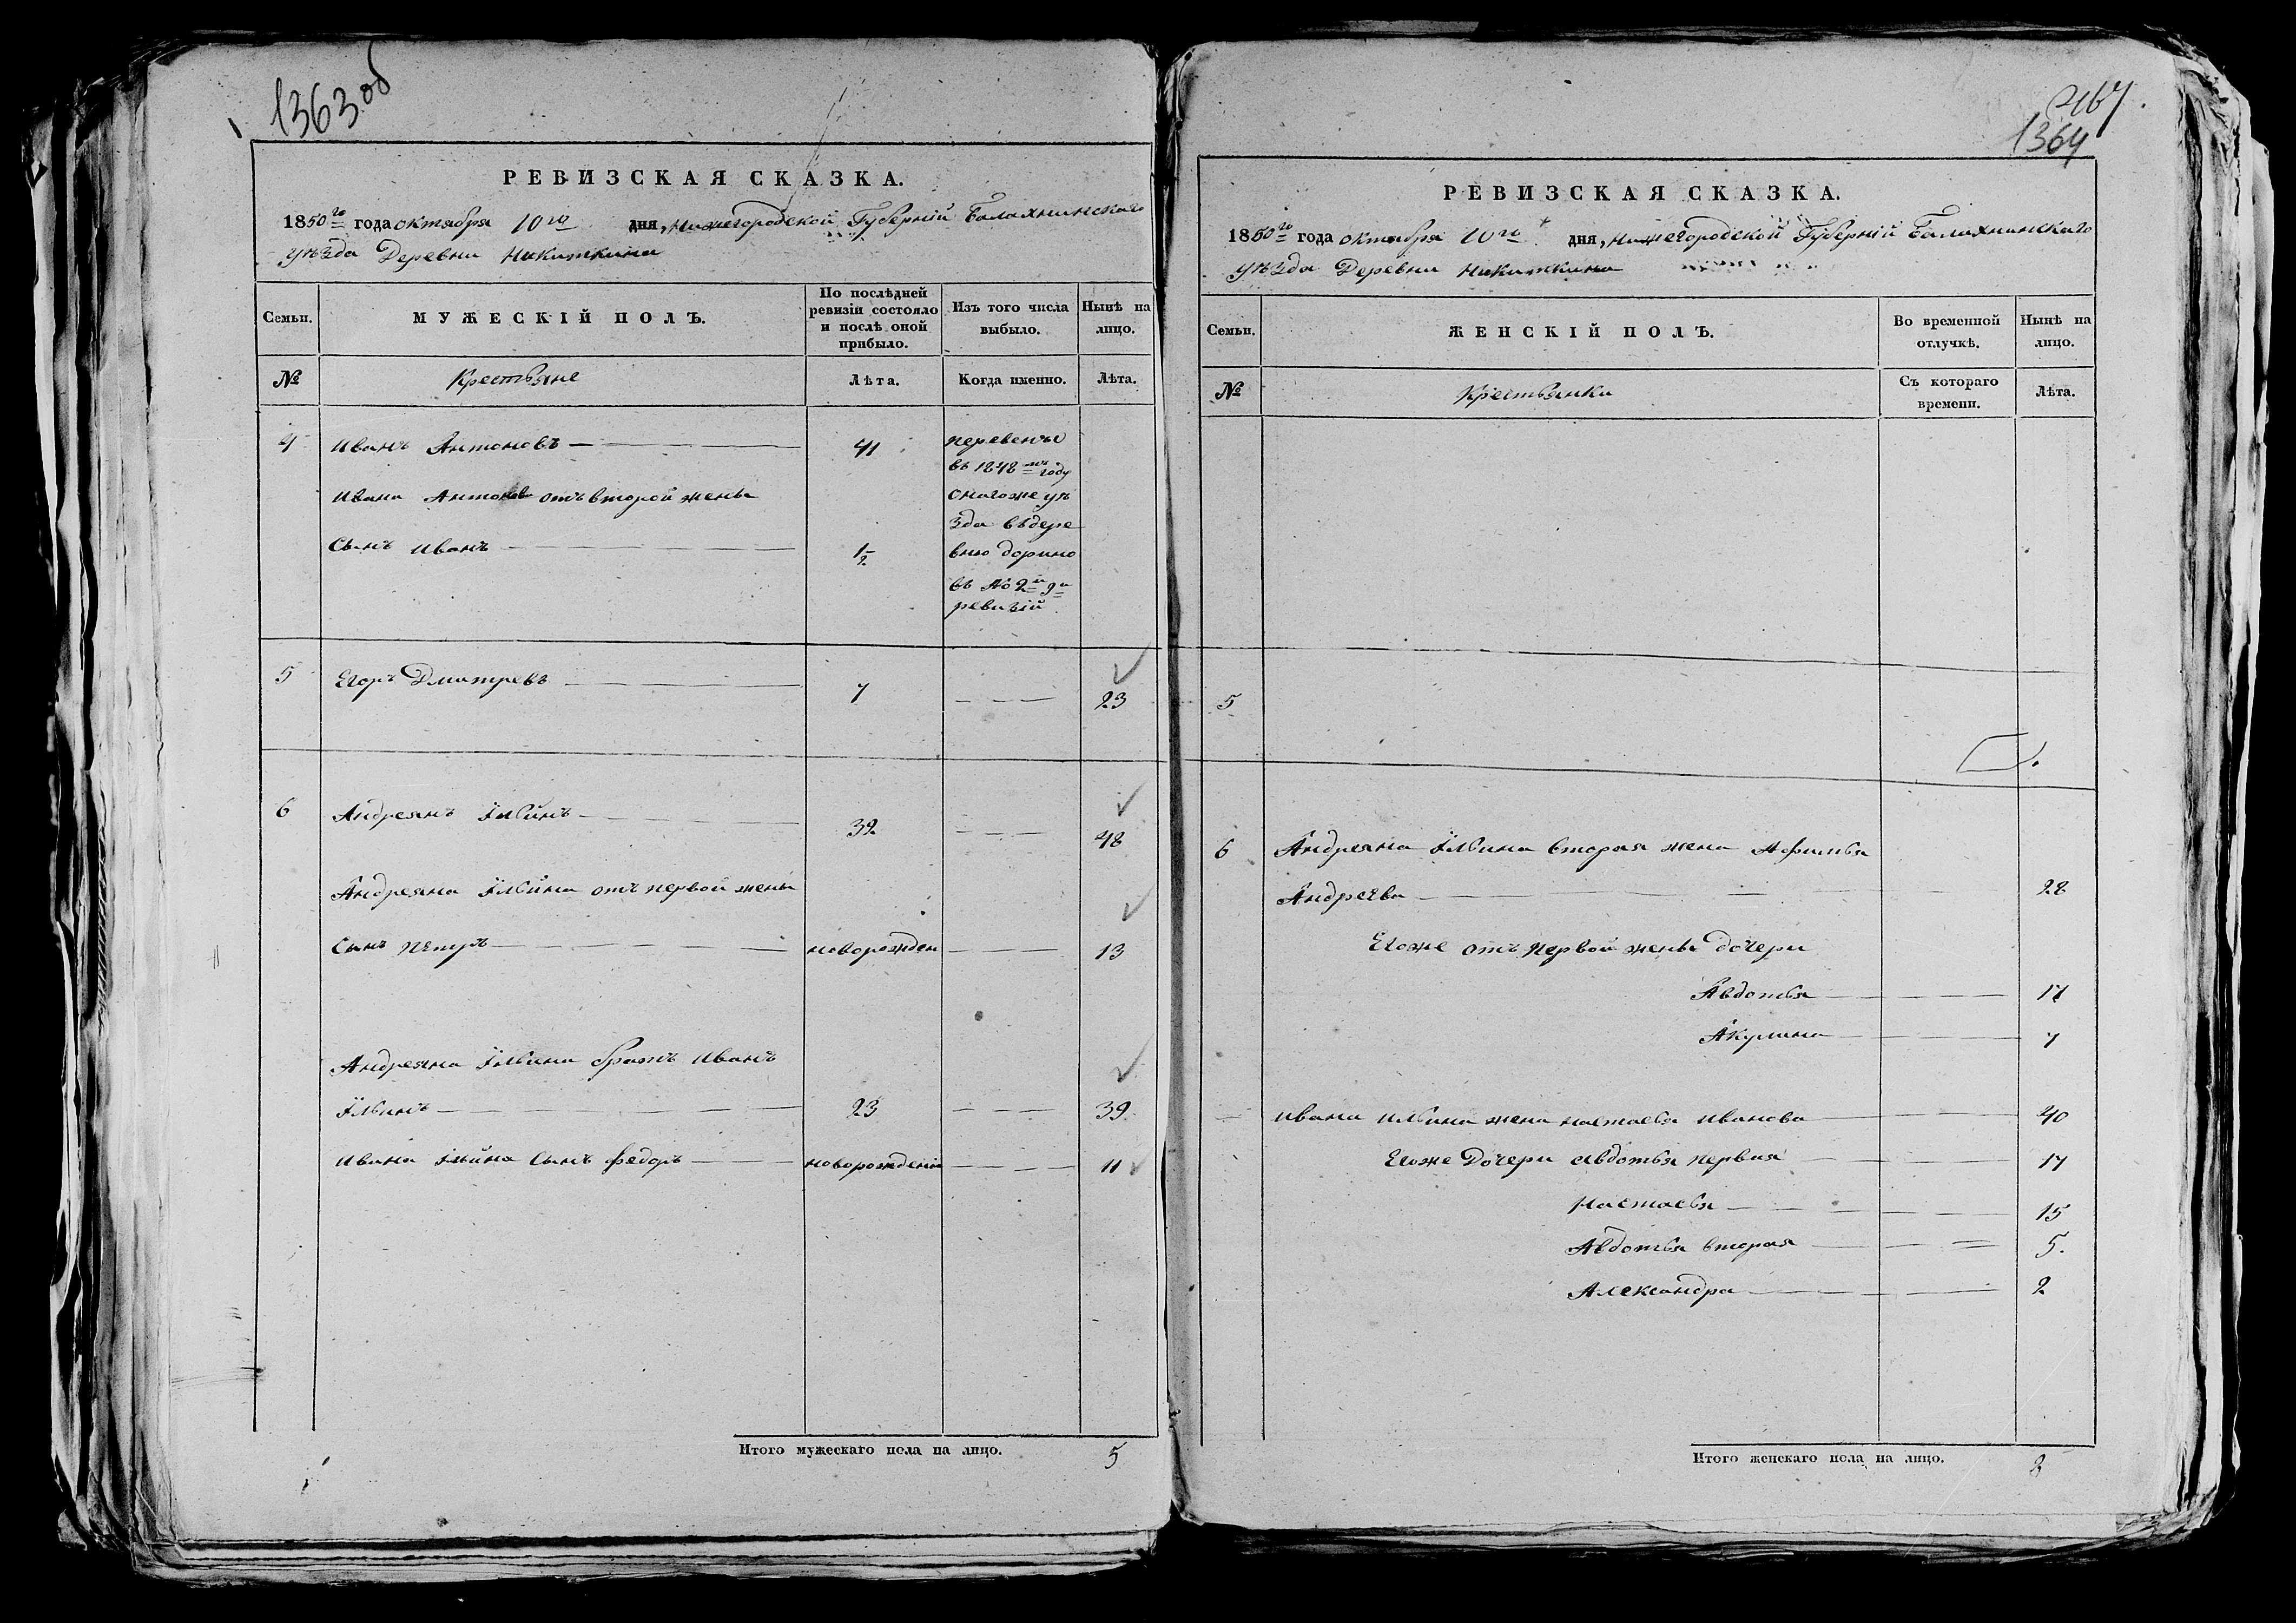 1363 об
РЕВИЗСКАЯ СКАЗКА.
1850го года октября 10го дня, Нижегородской Губерніи Балахнинскаго
уѣзда Деревни Никиткина
Семьи.
МУЖЕСКІЙ ПОЛЪ.
По послѣдней ревизіи состояло и послѣ оной прибыло.
Изъ того числа выбыло.
Нынѣ на лицо.
№
Крестьяне
Лѣта.
Когда именно.
Лѣта.
4 Иванъ Антоновъ 41 переве
въ 1848мъ году
Ивана Антонова отъ второй жены онагоже уѣ
зда въ дере
Сынъ Иванъ 1/2 вню дорино
въ № 2й 9и
ревизіи
5 Егоръ Дмитревъ 7 23
6 Андреянъ Ильинъ 32 48
Андреяна Ильина отъ первой жены
Сынъ Петръ новорожден 13
Андреяна Ильина братъ Иванъ
Ильинъ 23 39
Ивана Ильина Сынъ Федоръ новорожденъ 11
Итого мужескаго пола на лицо. 5
1364
РЕВИЗСКАЯ СКАЗКА.
1850го года октября 10го дня, Нижегородской Губерніи Балахнинскаго
уѣзда Деревни Никиткина
Семьи.
ЖЕНСКІЙ ПОЛЪ.
Во временной отлучкѣ.
Нынѣ на лицо.
№
Крестьянки
Съ котораго времени.
Лѣта.
5
6 Андреяна Ильина вторая жена Афимья
Андреева 28
Егоже отъ первой жены дочери
Авдотья 17
Акулина 7
Ивана Ильина жена Настасья Иванова 40
Егоже Дочери Авдотья первая 17
Настасья 15
Авдотья вторая 5.
Александра 2
Итого женскаго пола на лицо. 8